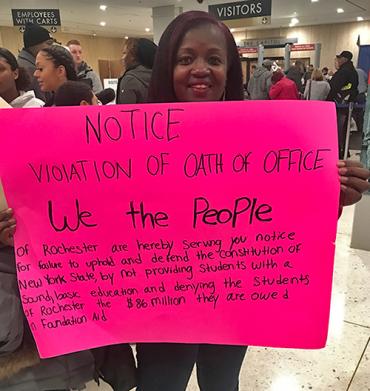 EMPLOYEES
WITH CARTS
VISITORS
NOTICE
VIOLATION OF OATH OF OFFICE
We the PeoPle
OF Rochester are hereby serving you notice
for failure to uphold and defend the constitution of
New York State, by not providing Students with a
Sound, basic education and denying the Students
of Rochester the $86 million they are owed
in Foundation Aid